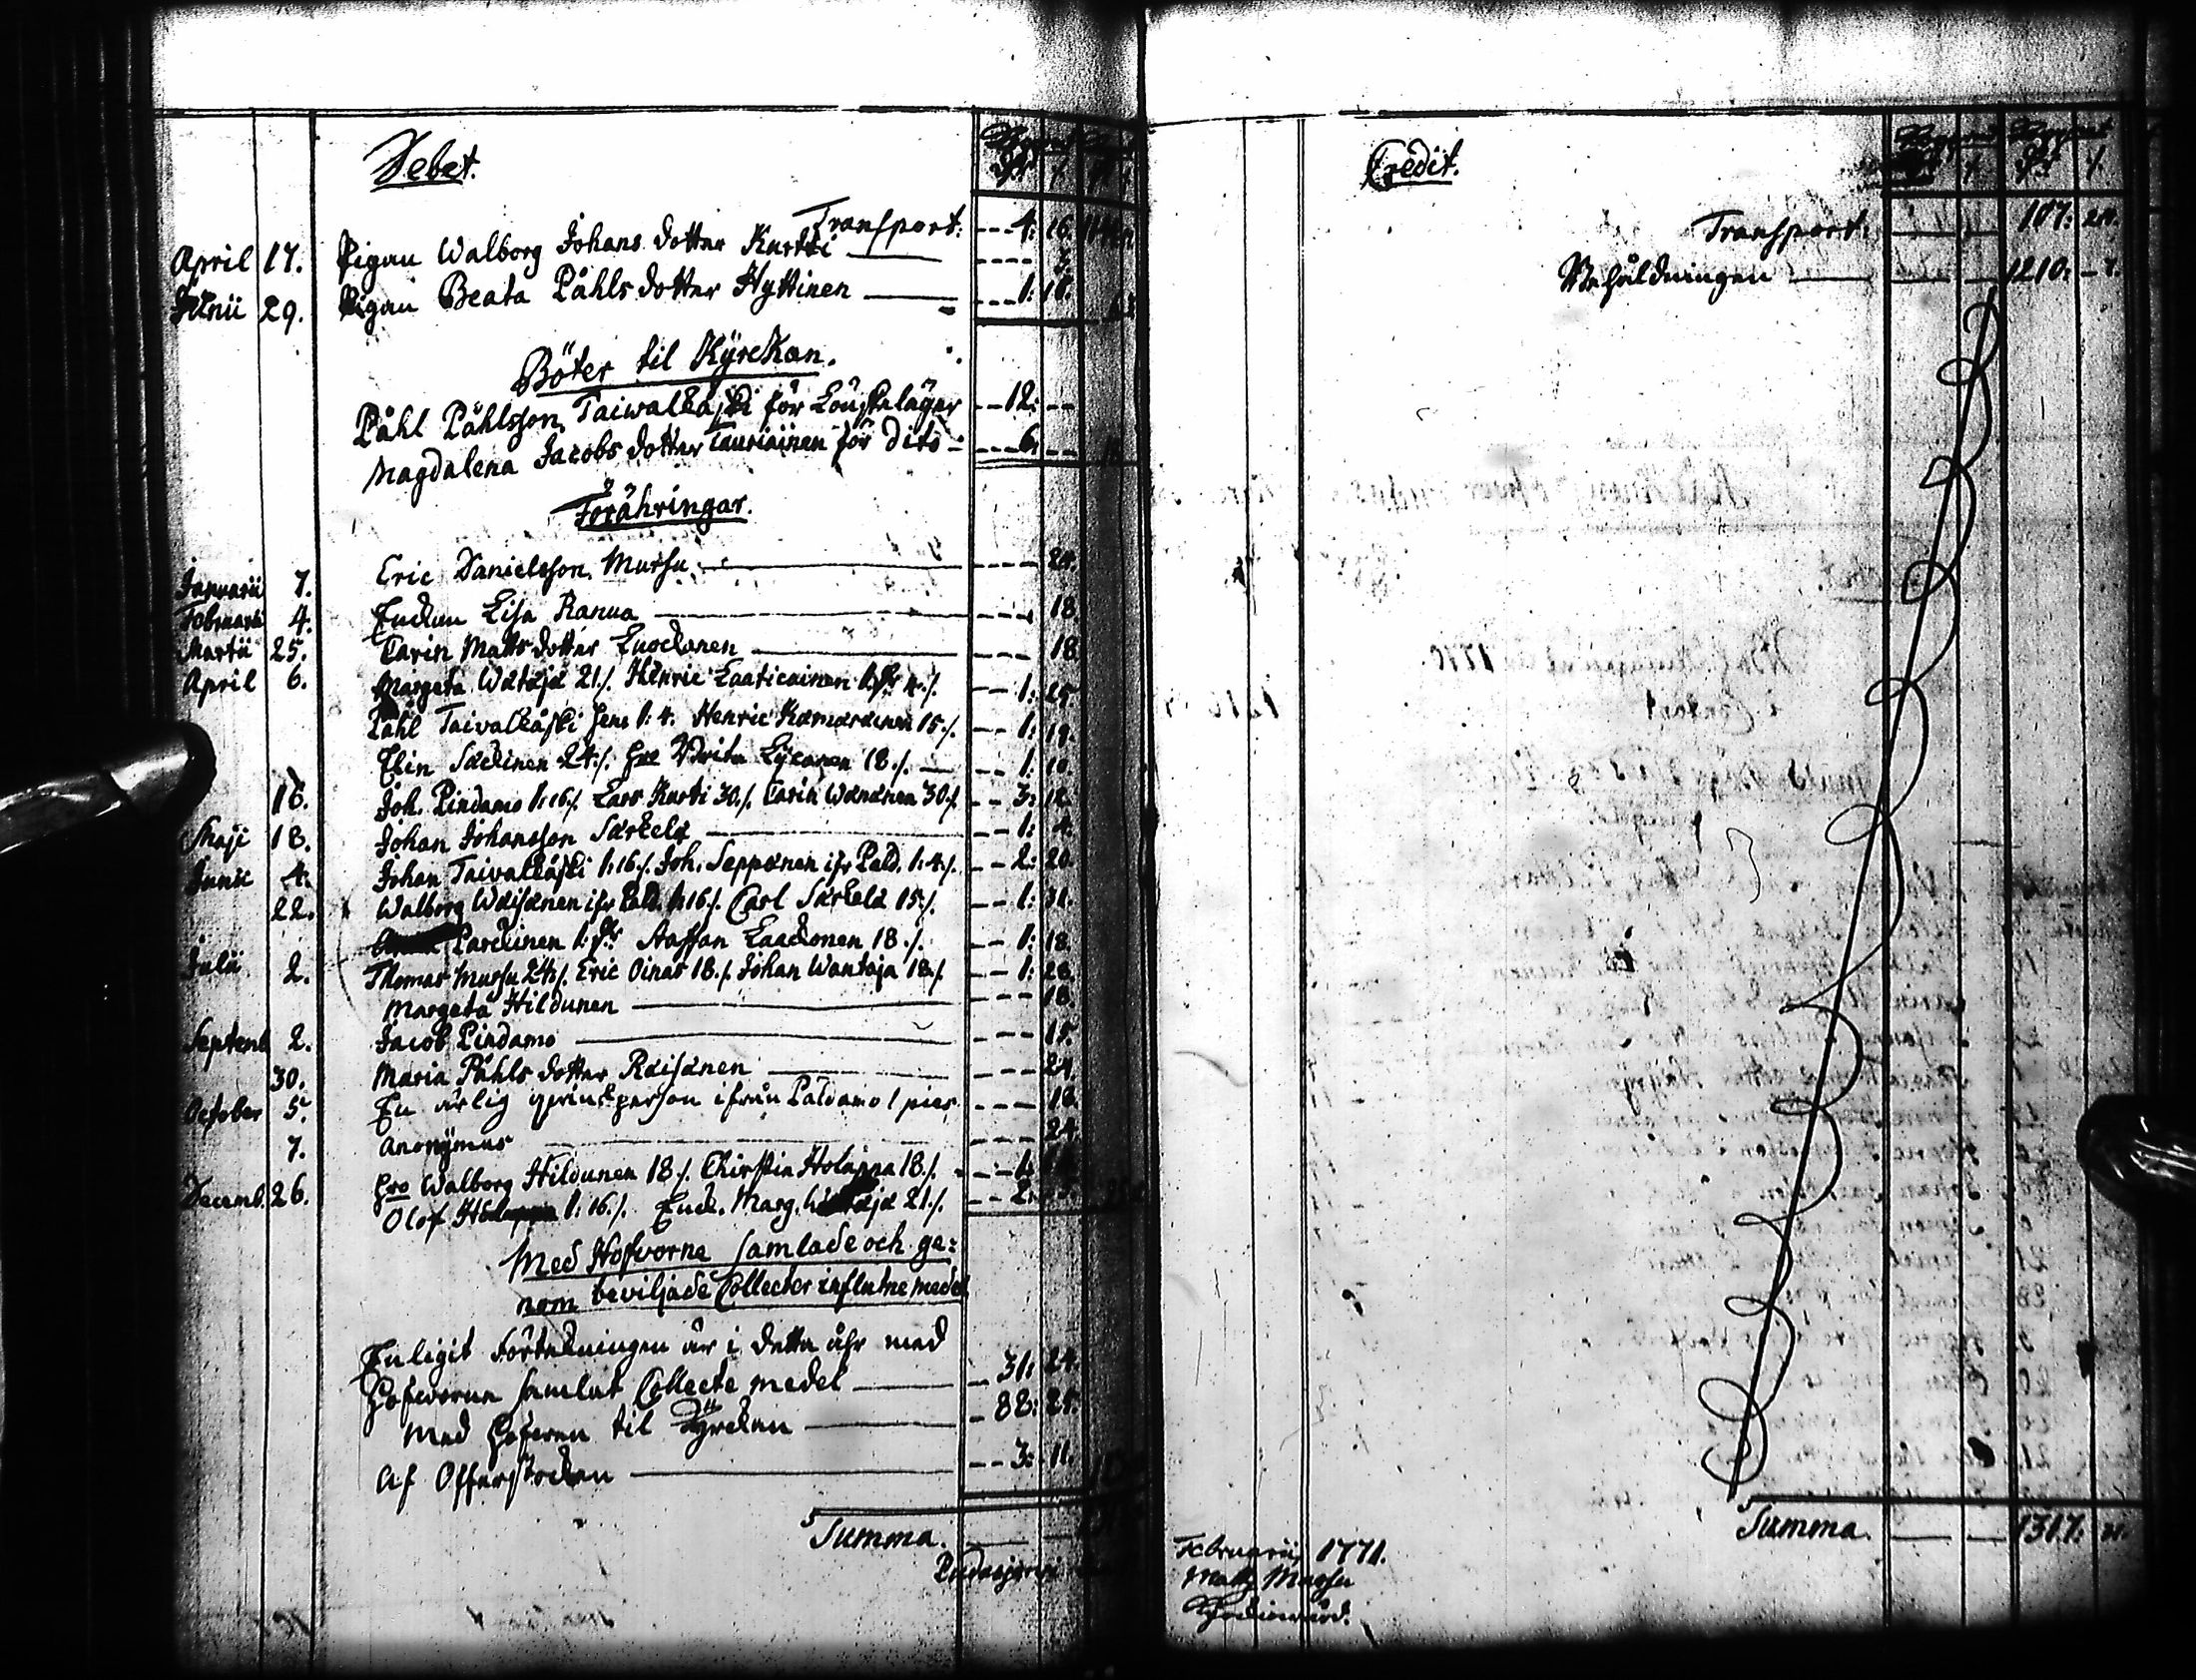 Debet.
Transport: 4: 16.
April 17. Pigan Walborg Johans dotter Kurtti
Junii 29. Pigan Beata Påhls dotter Hyttinen 1: 18.
Böter til Kyrckan.
Påhl Påhlsson Taiwalkåski för Lönskeläger 12:
Magdalena Jacobs dotter Tauriainen för dito 6:
Förähringar.
Januarii 7. Eric Danielsson Mursu 24.
Februarii 4. Enckan Lisa Ranua 18.
Martii 25. Carin Matts dotter Luockonen 18.
April 6. Margeta Wätäjä 21./. Henric Laaticainen 1: 25.
Påhl Taivalkåski 1: 4. Henric Hämäräinen 15./. 1: 19.
Elin Säckinen 24./. Brita Lycanen 18./. 1: 10.
16. Joh. Pindamo 1:16./. Lars Kurti 30./. Carin Wänänen 30./. 3: 12.
Maji 18. Johan Johansson Särkelä 1: 4.
Junii 4. Johan Taivalkåski 1:16./. Joh. Seppänen ifr Pald. 1:4./. 2: 20.
22. Walborg Wäisänen ifr Pald. 1:16./. Carl Särkelä 15./. 1: 31.
Parckinen Staffan Laackonen 18./. 1: 18.
Julii 2. Thomas Mursu 24./. Eric Oinas 18./. Johan Wantaja 18./. 1: 28.
Margeta Hildunen 18.
Septemb 2. Jacob Pindamo 15.
30. Maria Påhls dotter Räisänen 24.
October 5. En ärlig person ifrån Paldamo 1 pies 18.
7. Anonymus 24.
Decemb. 26. Walborg Hildunen 18./. Chirstin Holappa 18./. 1:
Olof 1: 16./. Enck. Marg. 21./. 2:
Med Hofvorne samlade och ge:
nom beviljade Collecter influtne medel
Enligit Förtekningen är i detta åhr med
Hofworne samlat Collecte medel 31: 24.
Med Hofwen til Kyrckan 88: 25.
Af Offerstocken 3: 11.
Summa.
Pudasjervi
Credit.
Transport: 107: 24.
Behåldningen 1210:
Summa. 1317.
Februarii 1771.
Matts Mursu
Kyrckiowärd.